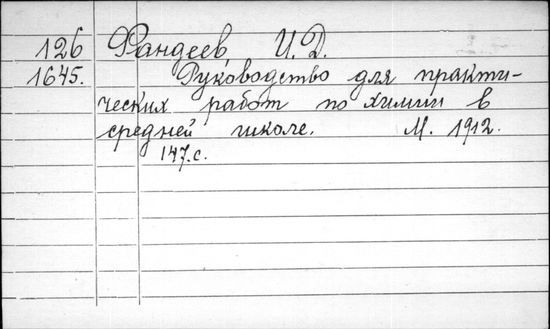 126 Фандеев, И. Д.
1645. Руководство для практи-
ческих работ по химии в
средней школе. М. 1912.
147.с.